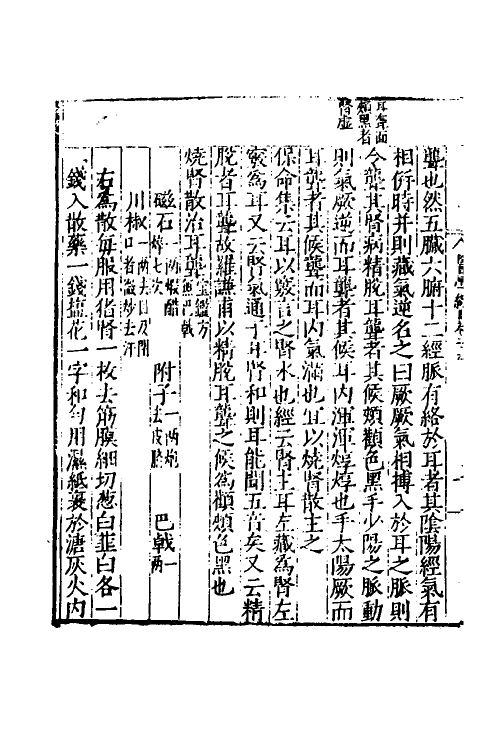 耳聾面
頰黑者
腎虛
聾也然五臟六腑十二經脈有絡於耳者其陰陽經氣有
相併時并則藏氣逆名之曰厥厥氣相搏入於耳之脈則
令聾其腎病精脫耳聾者其候頰顴色黑手少陽之脈動
則氣厥逆而耳聾者其候耳內渾渾焞焞也手太陽厥而
耳聾者其候聾而耳內氣滿也宜以燒腎散主之
保命集云耳以竅言之腎水也經云腎主耳左藏為腎左
竅為耳又云腎氣通于耳腎和則耳能聞五音矣又云精
脫者耳聾故羅謙甫以精脫耳聾之候為顴頰色黑也
燒腎散治耳聾寶鑑方
磁石一兩煅醋淬七次 附子一兩炮去皮臍 巴戟一兩
川椒一兩去目及閉口者微炒去汗
右為散每服用猪腎一枚去筋膜細切葱白韭白各一
錢入散藥一錢鹽花一字和勻用濕紙裹於溏灰火內